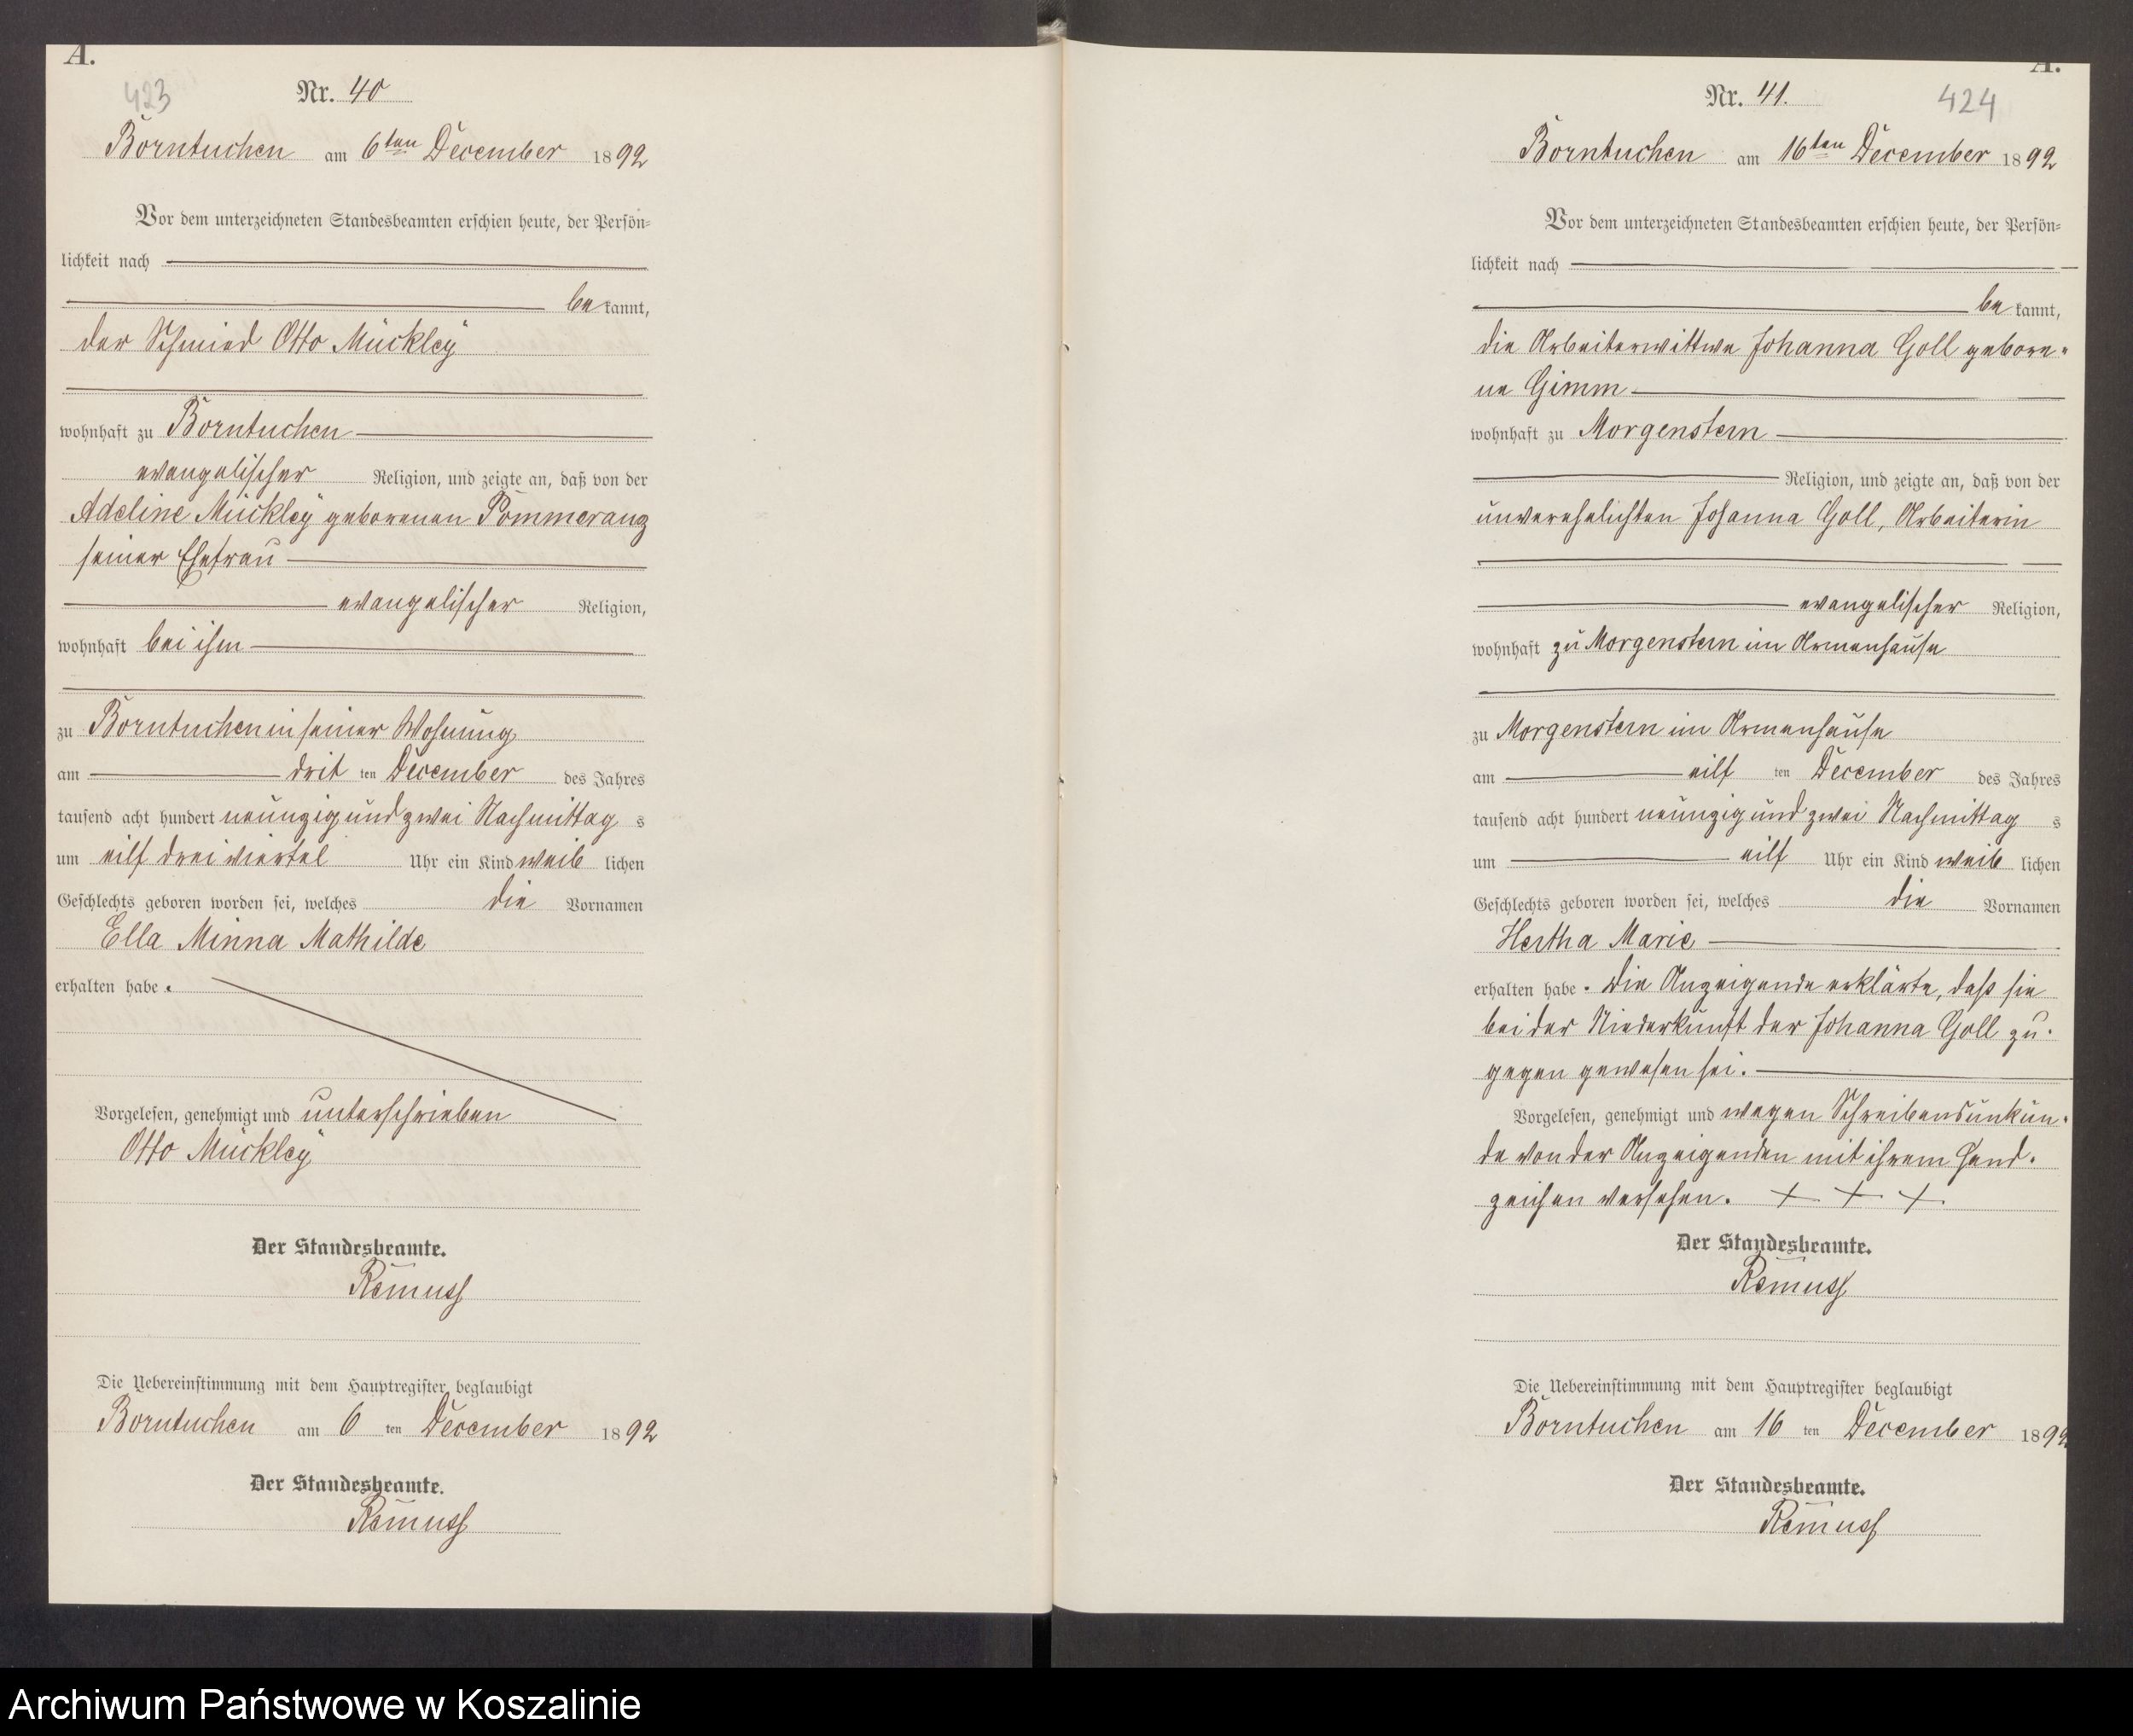 A.
423
Nr. 40
Borntuchen am 6ten December 1892
Vor dem unterzeichneten Standesbeamten erschien heute, der Persön-
lichkeit nach
be kannt,
der Schmied Otto Mückley
wohnhaft zu Borntuchen
evangelischer Religion, und zeigte an, daß von der
Adeline Mückley geborenen Pommeranz
seiner Ehefrau
evangelischer Religion,
wohnhaft bei ihm
zu Borntuchen in seiner Wohnung
am drit ten December des Jahres
tausend acht hundert neunzig und zwei Nachmittag s
um eilf drei viertel Uhr ein Kind weib lichen
Geschlechts geboren worden sei, welches die Vornamen
Ella Minna Mathilde
erhalten habe.
Vorgelesen, genehmigt und unterschrieben
Otto Mückley
Der Standesbeamte.
Remuss
Die Uebereinstimmung mit dem Hauptregister beglaubigt
Borntuchen am 6 ten December 1892
Der Standesbeamte.
Remuss
A.
Nr. 41.
424
Borntuchen am 16ten December 1892
Vor dem unterzeichneten Standesbeamten erschien heute, der Persön-
lichkeit nach
be kannt,
die Arbeiterwittwe Johanna Goll gebore-
ne Gimm
wohnhaft zu Morgenstern
Religion, und zeigte an, daß von der
unverehelichten Johanna Goll, Arbeiterin
evangelischer Religion,
wohnhaft zu Morgenstern im Armenhause
zu Morgenstern im Armenhause
am eilf ten December des Jahres
tausend acht hundert neunzig und zwei Nachmittag s
um eilf Uhr ein Kind weib lichen
Geschlechts geboren worden sei, welches die Vornamen
Hertha Marie
erhalten habe. Die Anzeigende erklärte, daß sie
bei der Niederkunft der Johanna Goll zu-
gegen gewesen sei.
Vorgelesen, genehmigt und wegen Schreibensunkun-
de von der Anzeigenden mit ihrem Hand-
zeichen versehen. + + +
Der Standesbeamte.
Remuss
Die Uebereinstimmung mit dem Hauptregister beglaubigt
Borntuchen am 16 ten December 1892
Der Standesbeamte.
Remuss
Archiwum Państwowe w Koszalinie